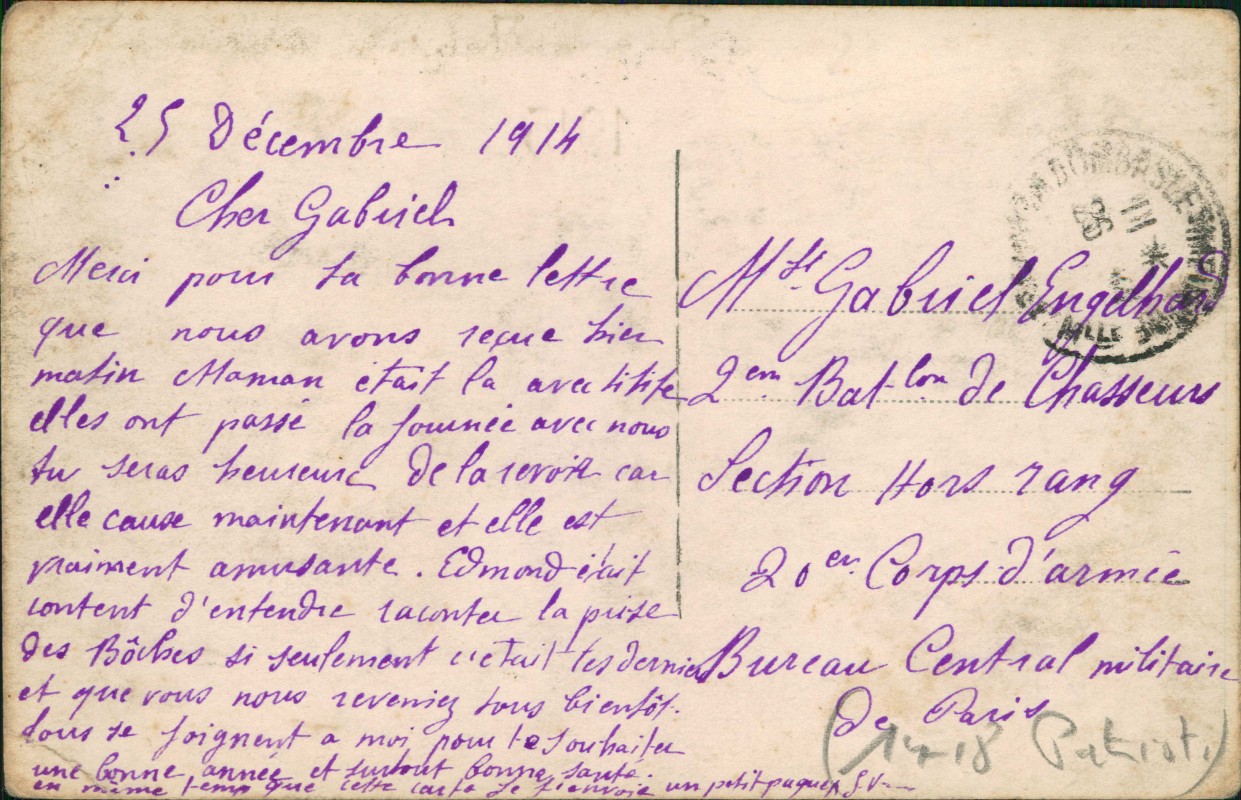 25 Décembre 1914
Cher Gabriel
Merci pour ta bonne lettre
que nous avons reçue hier
matin Maman était la avec titite
elles ont passé la journée avec nous
tu seras heureux de la revoir car
elle cause maintenant et elle est
vraiment amusante. Edmond était
content d'entendre raconter la prise
des Bôches si seulement c'était les derniers
et que vous nous reveniez tous bientôt.
tous se joignent a moi pour te souhaiter
une bonne année et surtout bonne santé.
en même temp que cette carte je t'envoie un petit paquet
Mr Gabriel Engelhard
2em Bat-lon de Chasseurs
Section Hors rang
20er Corps d'armée
Bureau Central militaire
de Paris
DOMBASLE
(14 18 Patriot.)